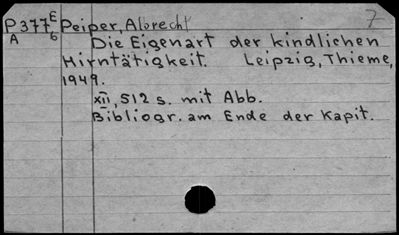 P377 E Peiper, Albrecht 7
A 6 Die Eigenart der kindlichen
Hirntätigkeit. Leipzig, Thieme,
1949.
XII, 512 s. mit Abb.
Bibliogr. am Ende der Kapit.